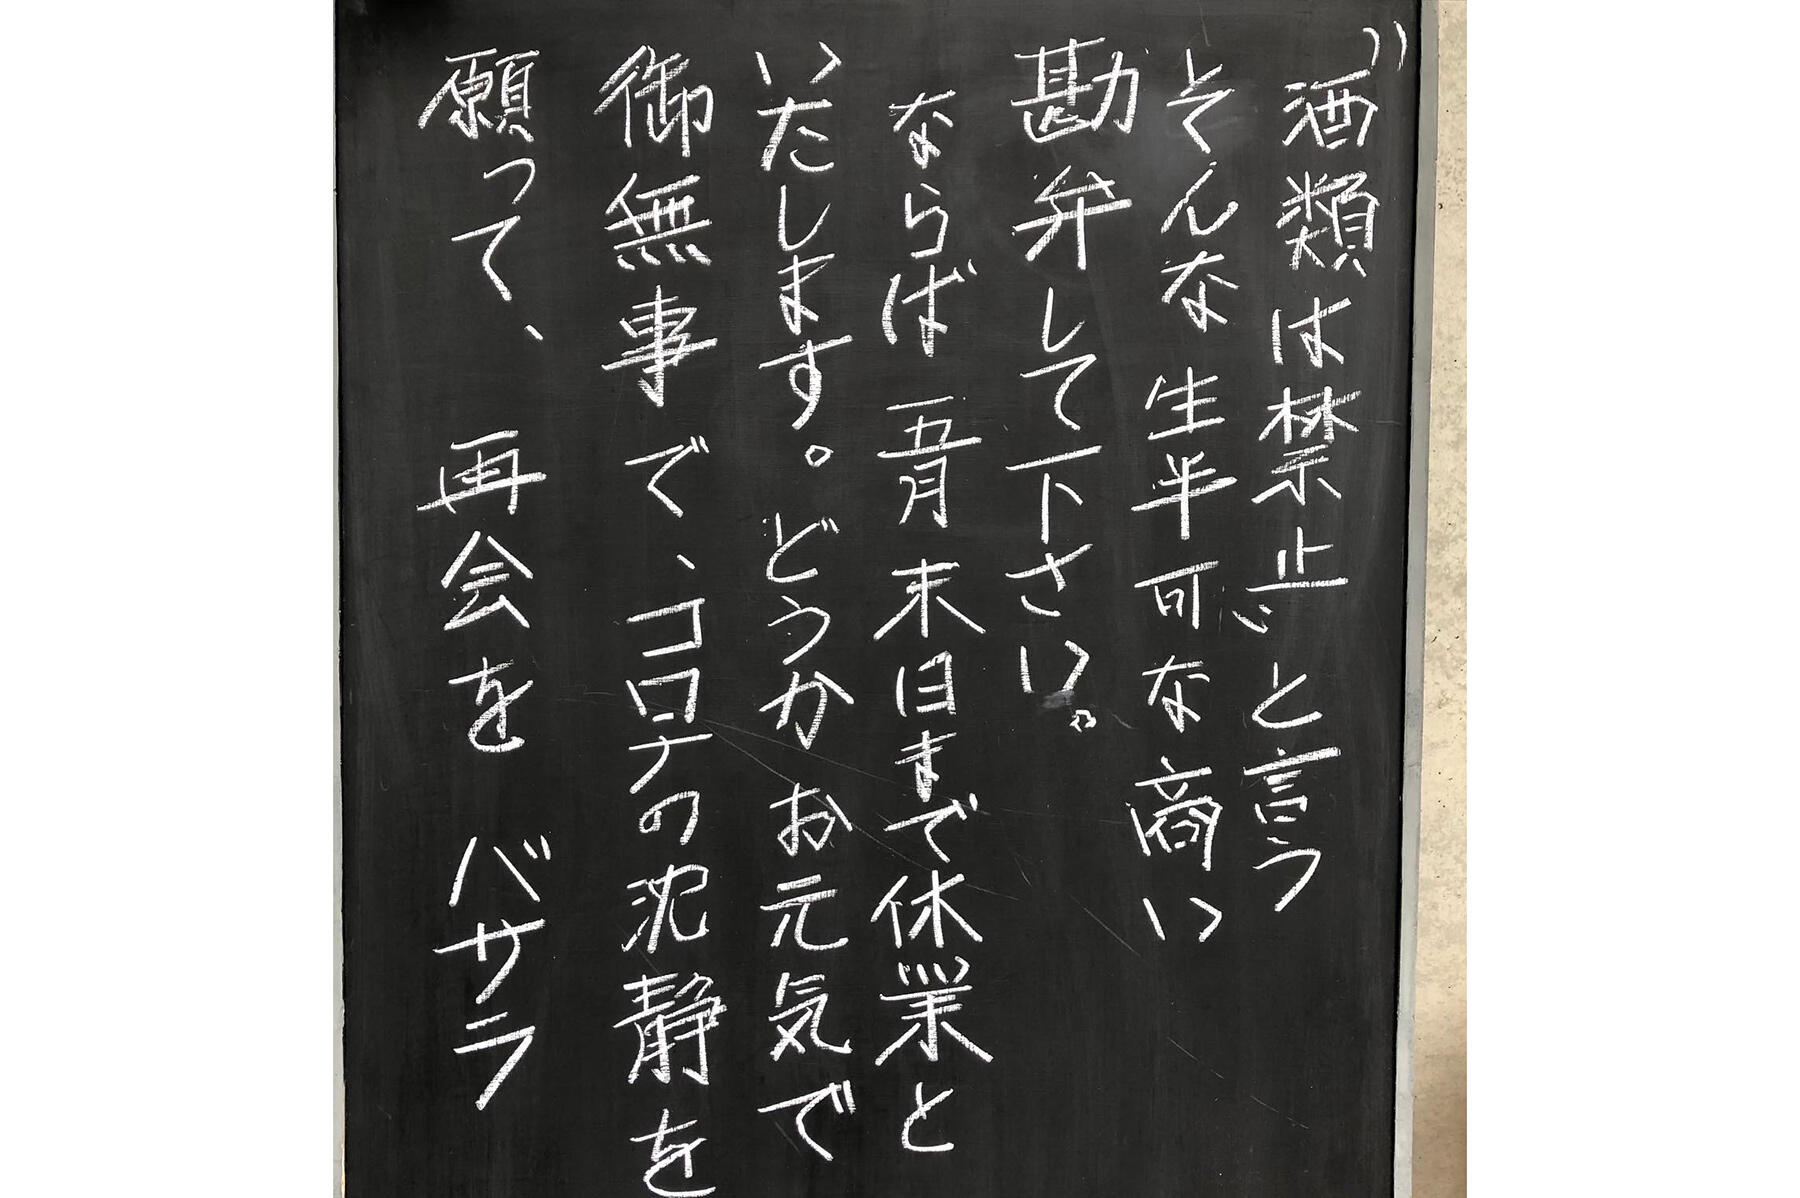 〃酒類は禁止〃と言う
そんな生半可な商い
勘弁して下さい。
ならば 五月末日まで休業と
いたします。どうかお元気で
御無事で、コロナの沈静を
願って、 再会を バサラ